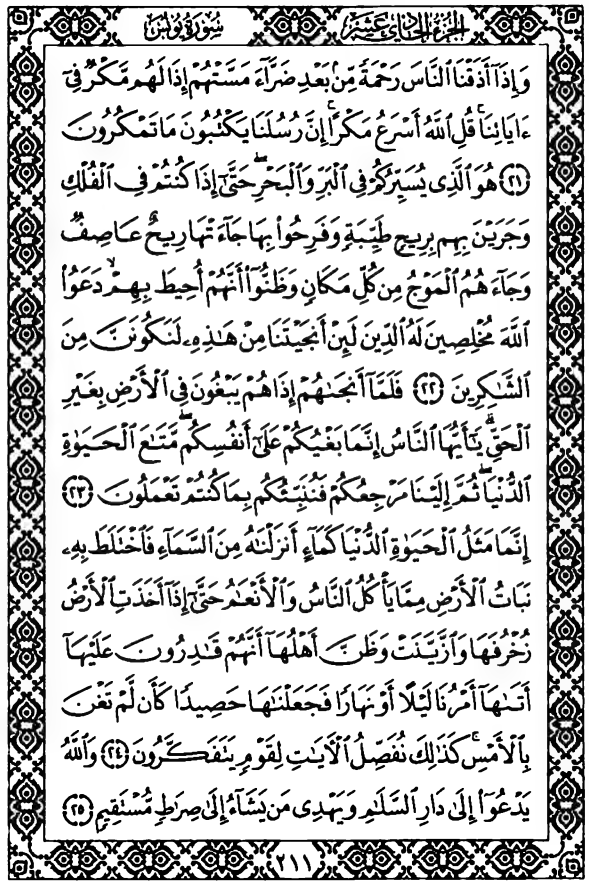 سُورَةُ يُونُس الجُزءُ الحَادِي عَشَر
وَإِذَآ أَذَقْنَا ٱلنَّاسَ رَحْمَةً مِّنۢ بَعْدِ ضَرَّآءَ مَسَّتْهُمْ إِذَا لَهُم مَّكْرٌ فِىٓ
ءَايَاتِنَا ۚ قُلِ ٱللَّهُ أَسْرَعُ مَكْرًا ۚ إِنَّ رُسُلَنَا يَكْتُبُونَ مَا تَمْكُرُونَ
﴿٢١﴾ هُوَ ٱلَّذِى يُسَيِّرُكُمْ فِى ٱلْبَرِّ وَٱلْبَحْرِ ۖ حَتَّىٰٓ إِذَا كُنتُمْ فِى ٱلْفُلْكِ
وَجَرَيْنَ بِهِم بِرِيحٍ طَيِّبَةٍ وَفَرِحُوا۟ بِهَا جَآءَتْهَا رِيحٌ عَاصِفٌ
وَجَآءَهُمُ ٱلْمَوْجُ مِن كُلِّ مَكَانٍ وَظَنُّوٓا۟ أَنَّهُمْ أُحِيطَ بِهِمْ ۙ دَعَوُا۟
ٱللَّهَ مُخْلِصِينَ لَهُ ٱلدِّينَ لَئِنْ أَنجَيْتَنَا مِنْ هَـٰذِهِۦ لَنَكُونَنَّ مِنَ
ٱلشَّـٰكِرِينَ ﴿٢٢﴾ فَلَمَّآ أَنجَىٰهُمْ إِذَا هُمْ يَبْغُونَ فِى ٱلْأَرْضِ بِغَيْرِ
ٱلْحَقِّ ۗ يَـٰٓأَيُّهَا ٱلنَّاسُ إِنَّمَا بَغْيُكُمْ عَلَىٰٓ أَنفُسِكُم ۖ مَّتَـٰعَ ٱلْحَيَوٰةِ
ٱلدُّنْيَا ۖ ثُمَّ إِلَيْنَا مَرْجِعُكُمْ فَنُنَبِّئُكُم بِمَا كُنتُمْ تَعْمَلُونَ ﴿٢٣﴾
إِنَّمَا مَثَلُ ٱلْحَيَوٰةِ ٱلدُّنْيَا كَمَآءٍ أَنزَلْنَـٰهُ مِنَ ٱلسَّمَآءِ فَٱخْتَلَطَ بِهِۦ
نَبَاتُ ٱلْأَرْضِ مِمَّا يَأْكُلُ ٱلنَّاسُ وَٱلْأَنْعَـٰمُ حَتَّىٰٓ إِذَآ أَخَذَتِ ٱلْأَرْضُ
زُخْرُفَهَا وَٱزَّيَّنَتْ وَظَنَّ أَهْلُهَآ أَنَّهُمْ قَـٰدِرُونَ عَلَيْهَآ
أَتَىٰهَآ أَمْرُنَا لَيْلًا أَوْ نَهَارًا فَجَعَلْنَـٰهَا حَصِيدًا كَأَن لَّمْ تَغْنَ
بِٱلْأَمْسِ ۚ كَذَٰلِكَ نُفَصِّلُ ٱلْـَٔايَـٰتِ لِقَوْمٍ يَتَفَكَّرُونَ ﴿٢٤﴾ وَٱللَّهُ
يَدْعُوٓا۟ إِلَىٰ دَارِ ٱلسَّلَـٰمِ وَيَهْدِى مَن يَشَآءُ إِلَىٰ صِرَٰطٍ مُّسْتَقِيمٍ ﴿٢٥﴾
٢١١